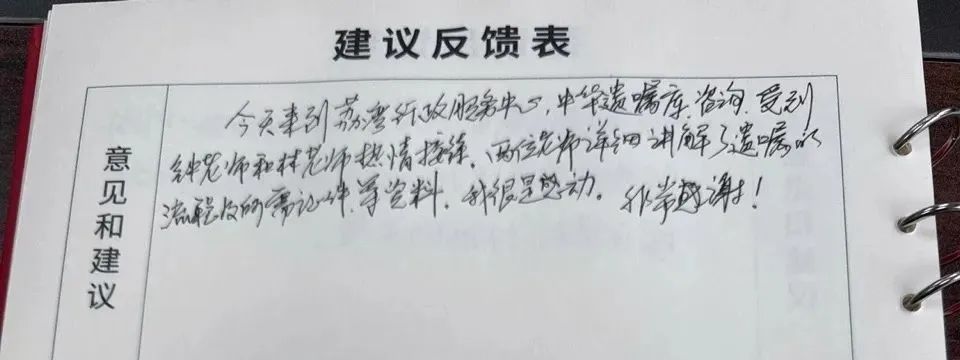 建议反馈表
意见和建议
今天来到荔湾行政服务中心,中华遗嘱库咨询,受到
钟老师和林老师热情接待,两位老师详细讲解了遗嘱的
流程及所需证件等资料,我很是感动。非常感谢!